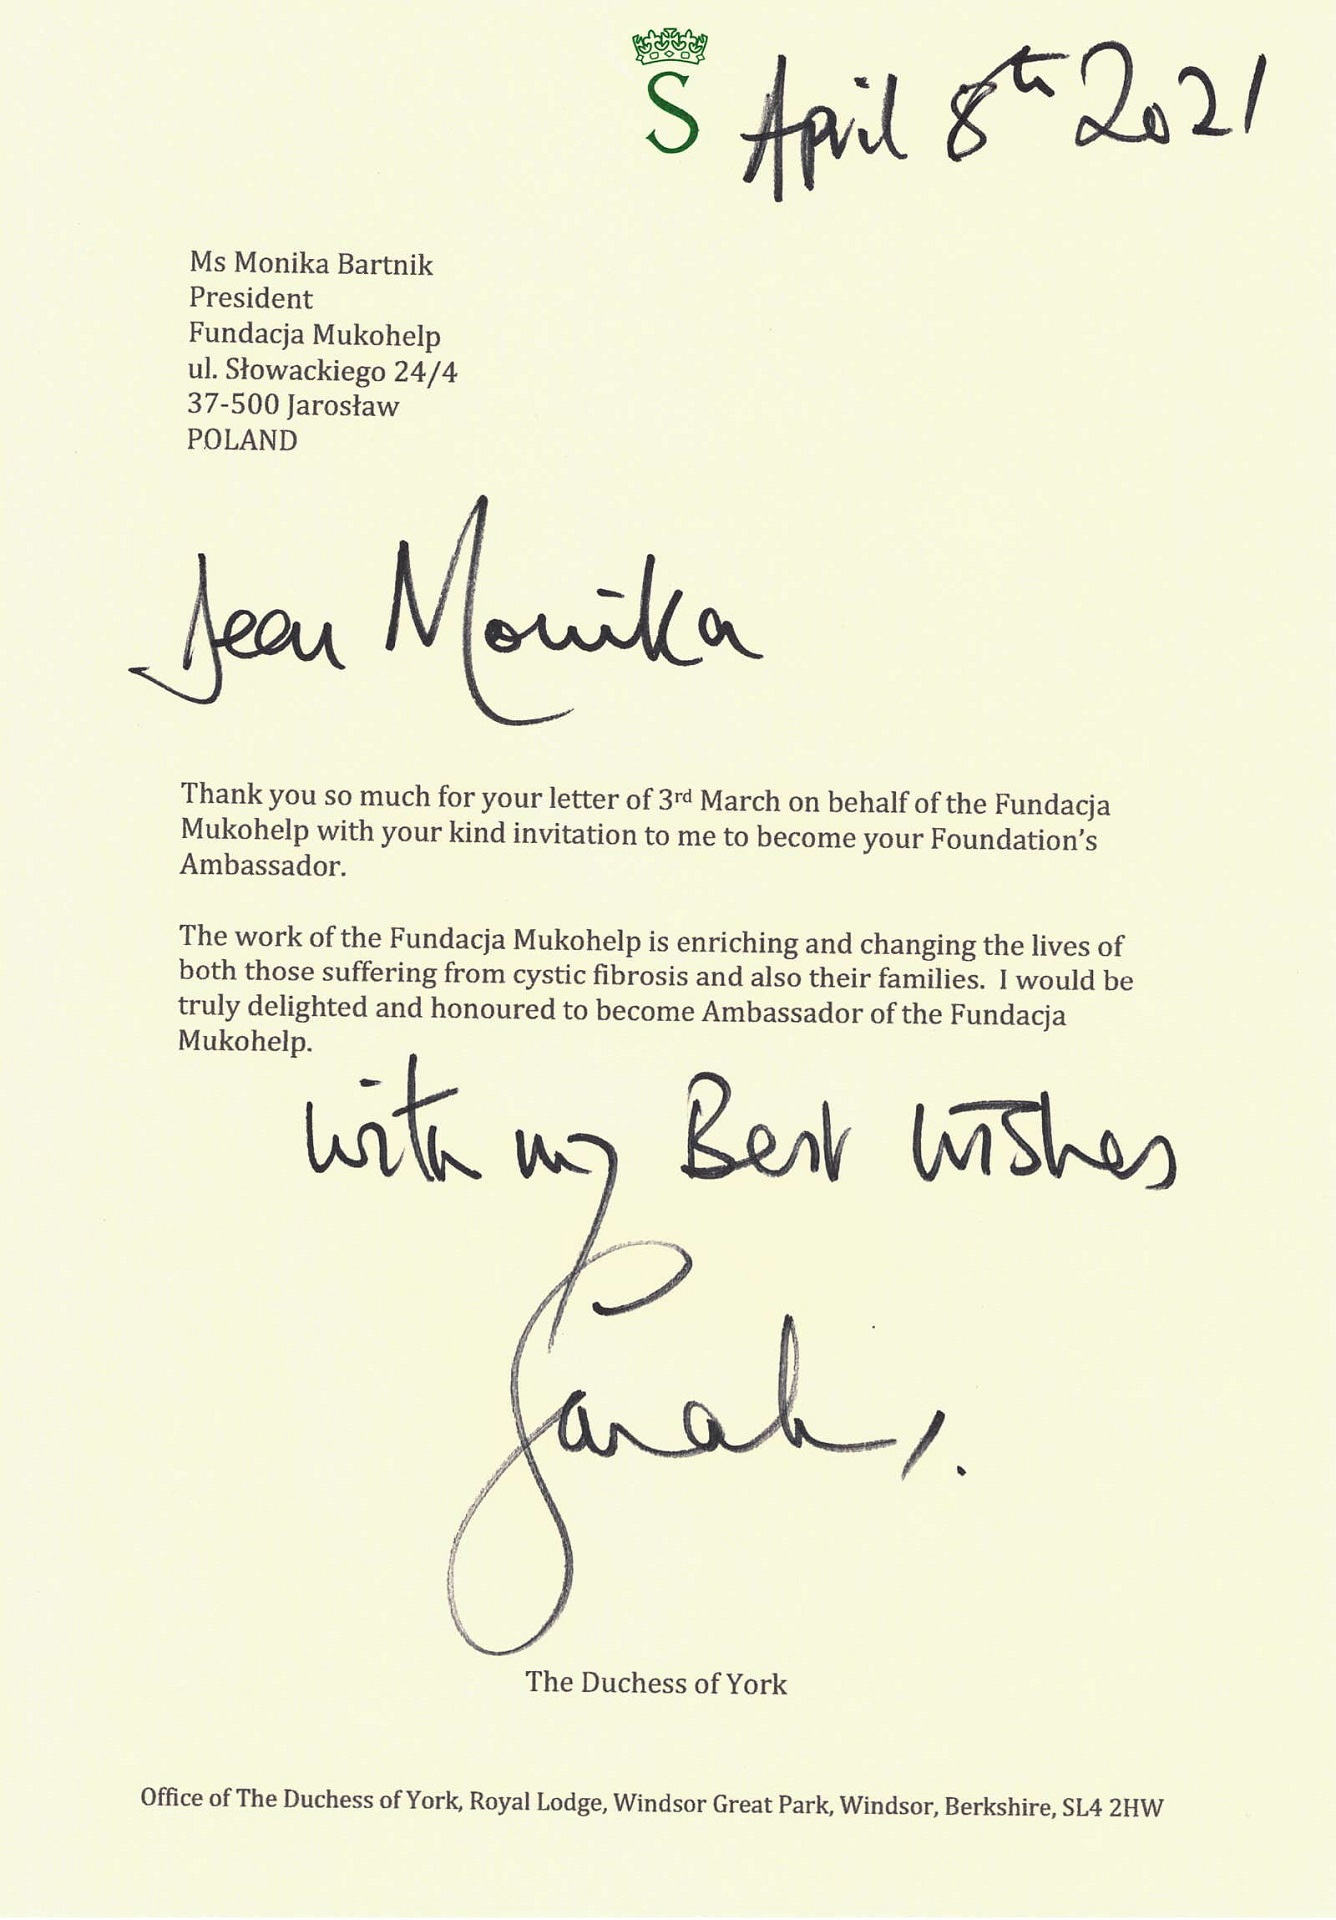 S
April 8th 2021
Ms Monika Bartnik
President
Fundacja Mukohelp
ul. Słowackiego 24/4
37-500 Jarosław
POLAND
Dear Monika
Thank you so much for your letter of 3rd March on behalf of the Fundacja
Mukohelp with your kind invitation to me to become your Foundation's
Ambassador.
The work of the Fundacja Mukohelp is enriching and changing the lives of
both those suffering from cystic fibrosis and also their families. I would be
truly delighted and honoured to become Ambassador of the Fundacja
Mukohelp.
With my Best Wishes
Sarah
The Duchess of York
Office of The Duchess of York, Royal Lodge, Windsor Great Park, Windsor, Berkshire, SL4 2HW